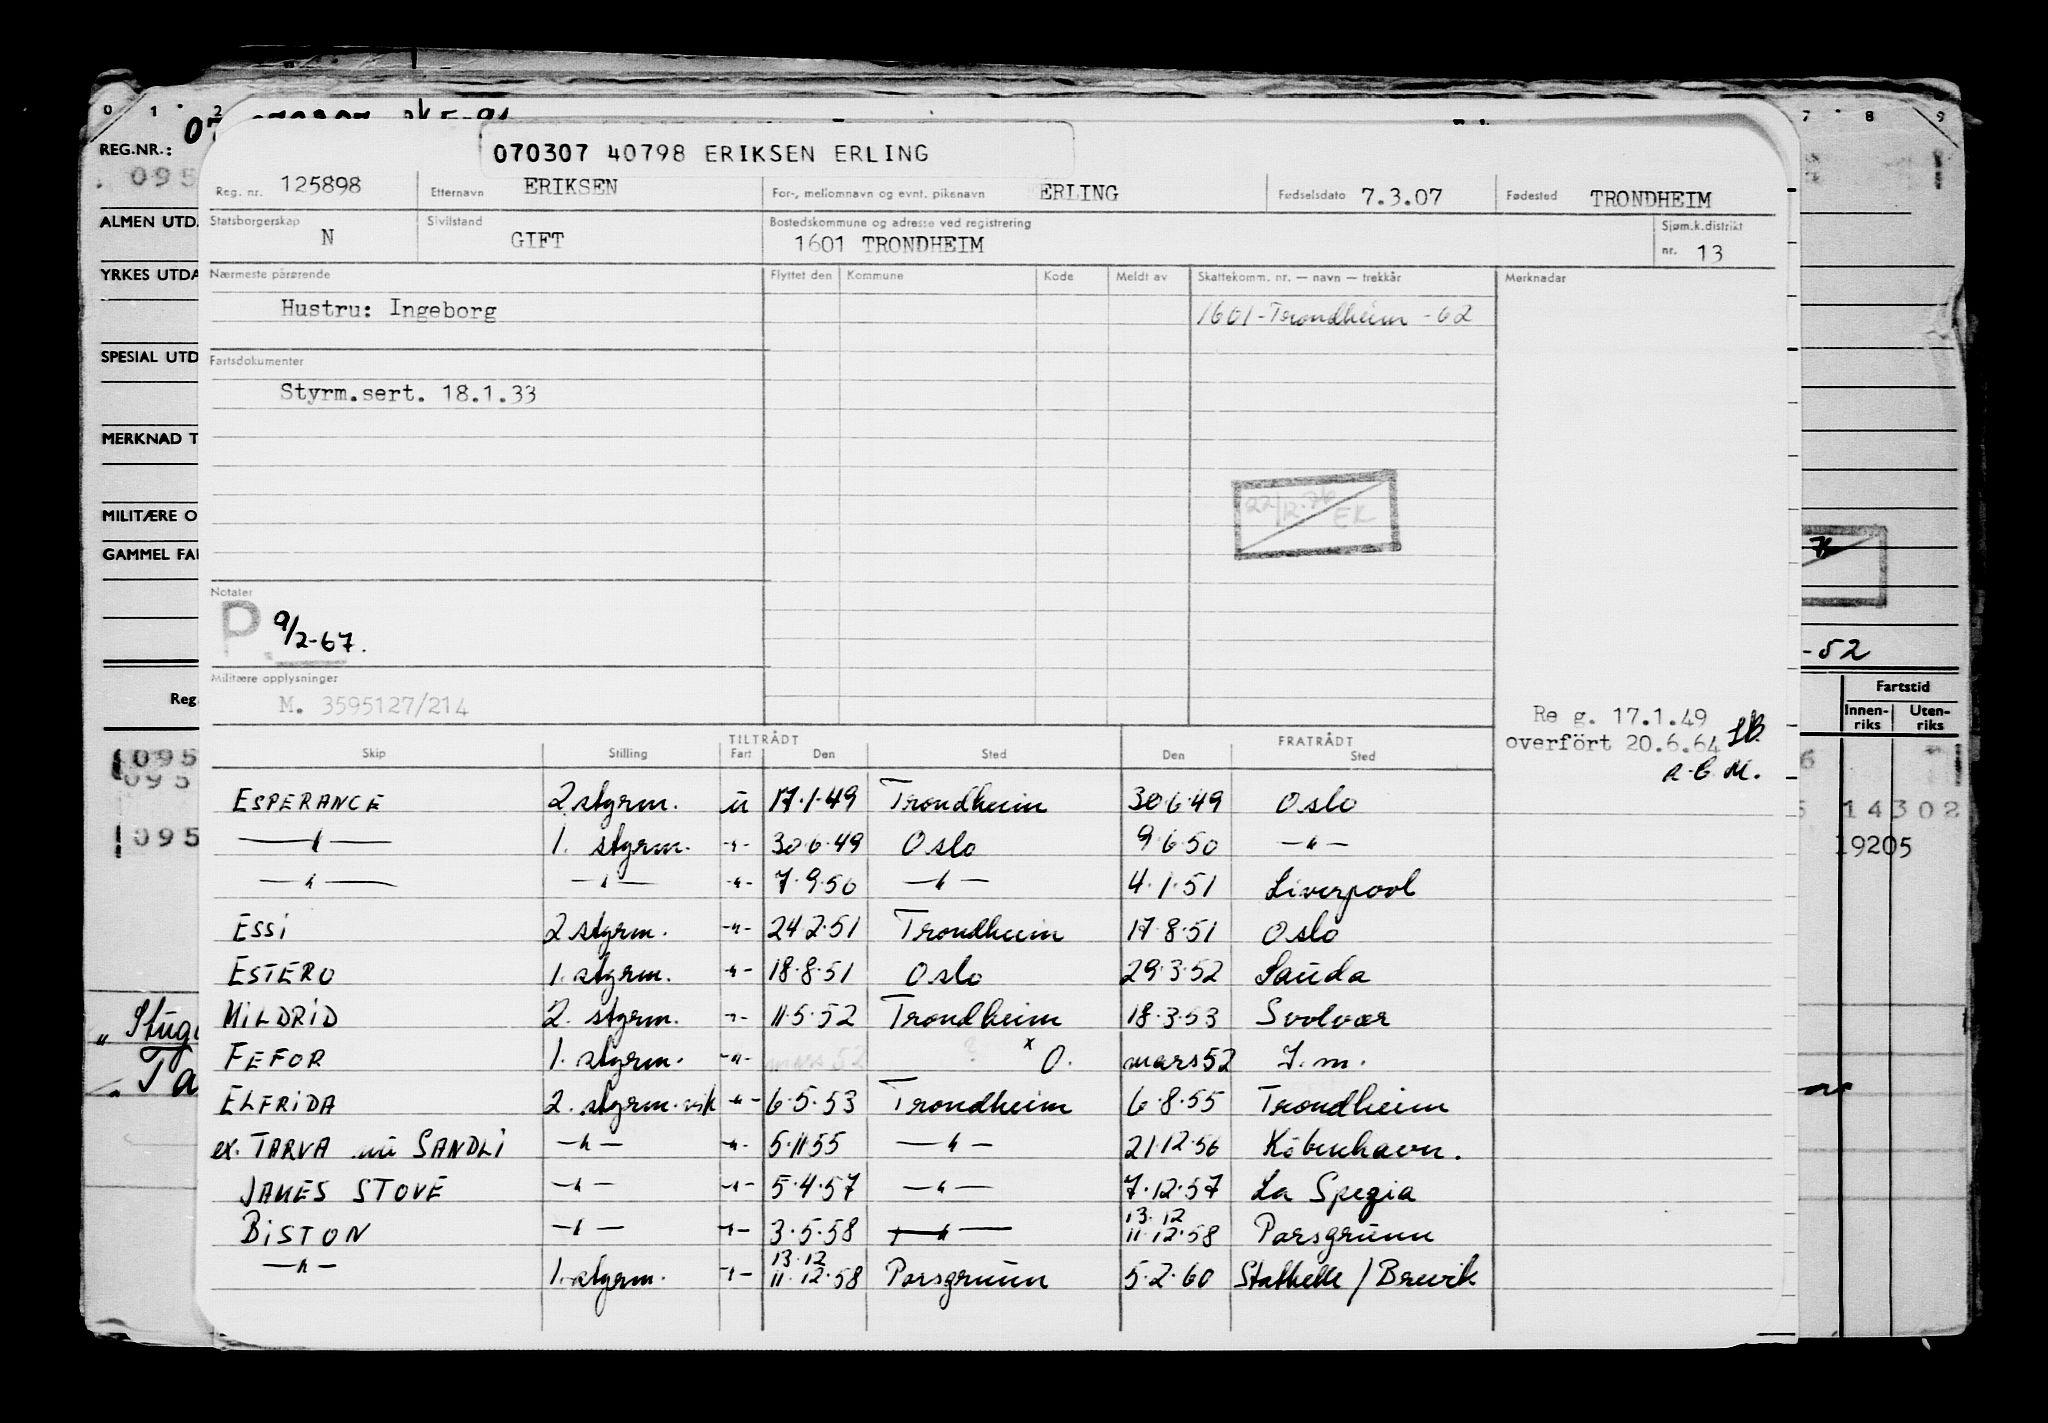 0 1 2 7 8 9
REG.NR.:
095
070307 40798 ERIKSEN ERLING
Reg. nr. 125898 Etternavn ERIKSEN For-, mellomnavn og evnt. pikenavn ERLING Fødselsdato 7.3.07 Fødested TRONDHEIM
ALMEN UTDA
Statsborgerskap N Sivilstand GIFT Bostedskommune og adresse ved registrering 1601 TRONDHEIM Sjøm.k.distrikt nr. 13
YRKES UTDA
Nærmeste pårørende Flyttet den Kommune Kode Meldt av Skattekomm. nr. — navn — trekkår Merknader
Hustru: Ingeborg 1601-Trondheim -62
SPESIAL UTD
Fartsdokumenter
Styrm.sert. 18.1.33
MERKNAD T
MILITÆRE O
22/12-76 EK
GAMMEL FA
Notater
P. 9/2-67.
-52
Militære opplysninger
M. 3595127/214
Reg
Fartstid
Innen-riks Uten-riks
Reg. 17.1.49
overfört 20.6.64
TILTRÅDT FRATRÅDT
Skip Stilling Fart Den Sted Den Sted
095
095
ESPERANCE 2 styrm. u 17.1.49 Trondheim 30.6.49 Oslo
14302
095
—"— 1. styrm. -"- 30.6.49 Oslo 9.6.50 —"—
19205
—"— —"— -"- 7.9.50 —"— 4.1.51 Liverpool
ESSI 2 styrm. -"- 24.2.51 Trondheim 17.8.51 Oslo
ESTERO 1. styrm. -"- 18.8.51 Oslo 29.3.52 Sauda
MILDRID 2. styrm. -"- 11.5.52 Trondheim 18.3.53 Svolvær
FEFOR 1. styrm. -"- mars 52 ? x O. mars 52 I.m.
ELFRIDA 2. styrm. vik -"- 6.5.53 Trondheim 6.8.55 Trondheim
ex. TARVA nu SANDLI —"— -"- 5.11.55 —"— 21.12.56 Köbenhavn.
JAMES STOVE —"— -"- 5.4.57 —"— 7.12.57 La Spezia
BISTON —"— -"- 3.5.58 —"— 13.12 11.12.58 Porsgrunn
—"— 1. styrm. -"- 13.12 11.12.58 Porsgrunn 5.2.60 Stathelle / Brevik